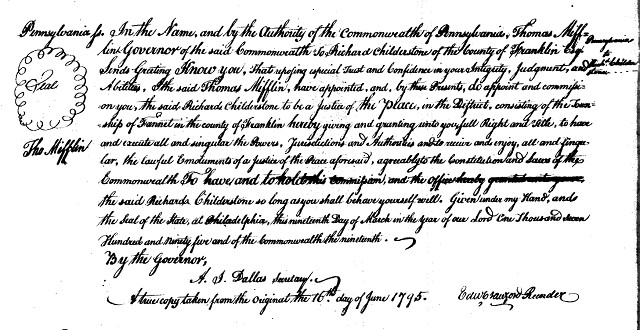 Pennsylvania ss. In the Name, and by the Authority of the Commonwealth of Pennsylvania, Thomas Miff-
lin Governor of the said Commonwealth To, Richard Childerstone of the County of Franklin Esqr
Sends Greeting Know you, That reposing especial Trust and Confidence in your Integrity, Judgment, and
Abilities, I the said Thomas Mifflin, have appointed, and, by these Presents, do appoint and commissi-
on you, the said Richard Childerstone to be a Justice of the Peace, in the District, consisting of the Town-
ship of Fannet in the county of Franklin hereby giving and granting unto you full Right and Title, to have
and execute all and singular the Powers, Jurisdictions and Authorities and to receive and enjoy, all and singu-
lar, the lawful Emoluments of a Justice of the Peace aforesaid, agreeably to the Constitution and Laws of the
Commonwealth To have and to hold this commission, and the Office hereby granted unto you
the said Richard Childerstone so long as you shall behave yourself well. Given under my Hand, and
the Seal of the State, at Philadelphia, this nineteenth Day of March in the year of our Lord One Thousand Seven
Hundred and Ninety five and of the Commonwealth the nineteenth.
By the Governor,
A. J. Dallas Secretary.
A true copy taken from the Original, the 16th day of June 1795.
Edw Crawford Recorder
Seal
Tho Mifflin
Pennsylvania
to